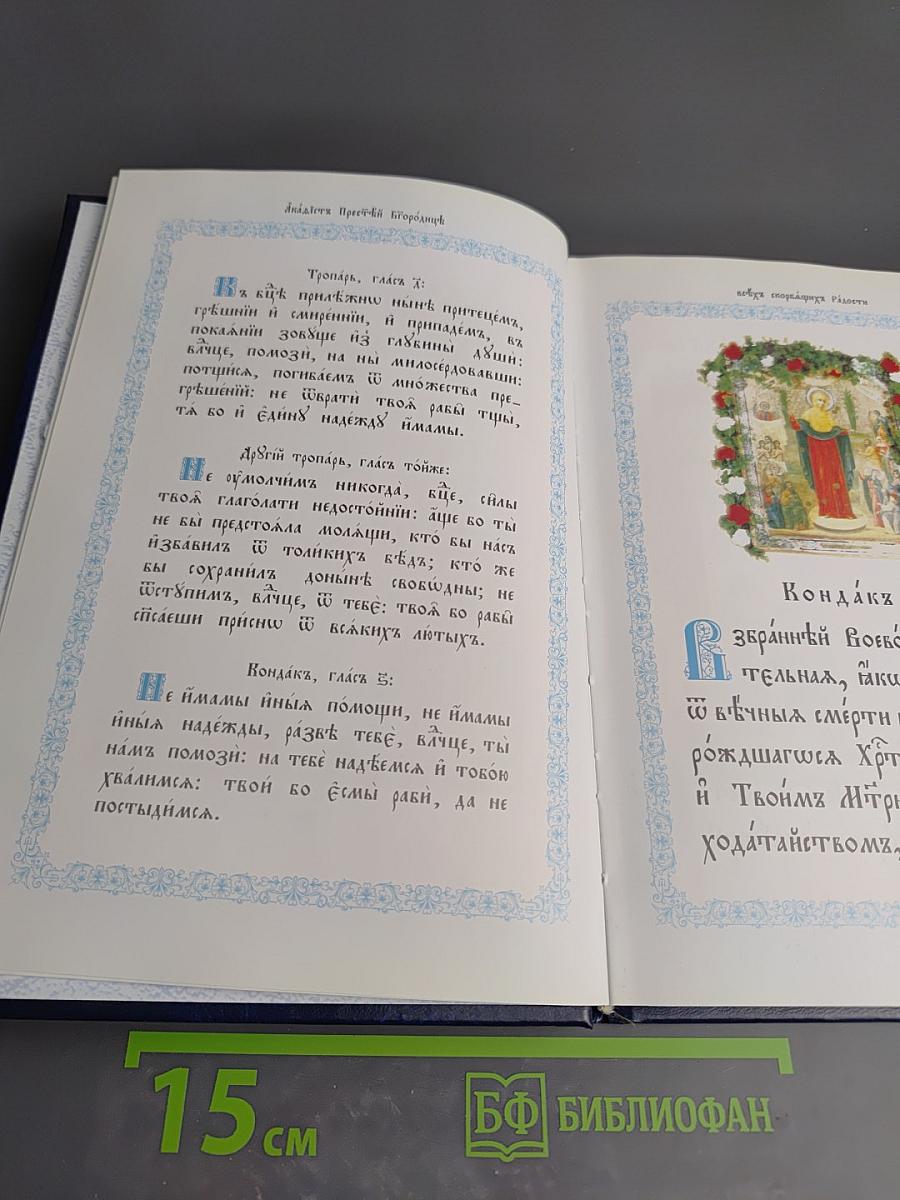 А҆ка́ѳїстъ Прест҃ѣ́й Бг҃оро́дицѣ
Тропа́рь, гла́съ д҃:
Къ бц҃ѣ прилѣ́жнѡ ны́нѣ притеце́мъ,
грѣ́шнїи и҆ смире́ннїи, и҆ припаде́мъ, въ
покаѧ́нїи зовꙋ́ще и҆з̾ глꙋбины̀ дꙋшѝ:
влⷣчце, помозѝ, на ны̀ милосе́рдовавши:
потщи́сѧ, погиба́емъ ѿ мно́жества пре_
грѣше́нїй: не ѿвратѝ твоѧ̑ рабы̑ тщы̀,
тѧ́ бо и҆ є҆ди́нꙋ наде́ждꙋ и҆́мамы.
Дрꙋгі́й тропа́рь, гла́съ то́йже:
Не ᲂу҆молчи́мъ никогда̀, бц҃е, си̑лы
твоѧ̑ глаго́лати недосто́йнїи: а҆́ще бо ты̀
не бы̀ предстоѧ́ла молѧ́щи, кто́ бы на́съ
и҆зба́вилъ ѿ толи́кихъ бѣ́дъ; кто́ же
бы сохрани́лъ доны́нѣ свобѡ́дны; не
ѿстꙋ́пимъ, влⷣчце, ѿ тебє̀: твоѧ̑ бо рабы̑
сп҃са́еши при́снѡ ѿ всѧ́кихъ лю́тыхъ.
Конда́къ, гла́съ ѕ҃:
Не и҆́мамы и҆ны́ѧ по́мощи, не и҆́мамы
и҆ны́ѧ наде́жды, ра́звѣ тебє̀, влⷣчце, ты̀
на́мъ помозѝ: на тебѐ надѣ́емсѧ и҆ тобо́ю
хва́лимсѧ: твои́ бо є҆смы̀ рабѝ, да не
постыди́мсѧ.
всѣ́хъ скорбѧ́щихъ Ра́дости
Конда́къ
Взбра́ннѣй Воево́
тельнаѧ, ꙗ҆́кѡ
ѿ вѣ́чныѧ сме́рти
ро́ждшагѡсѧ Хрⷭ҇т
и҆ Твои́мъ Мт҃рн
хода́тайствомъ,
15 см
БФ БИБЛИОФАН